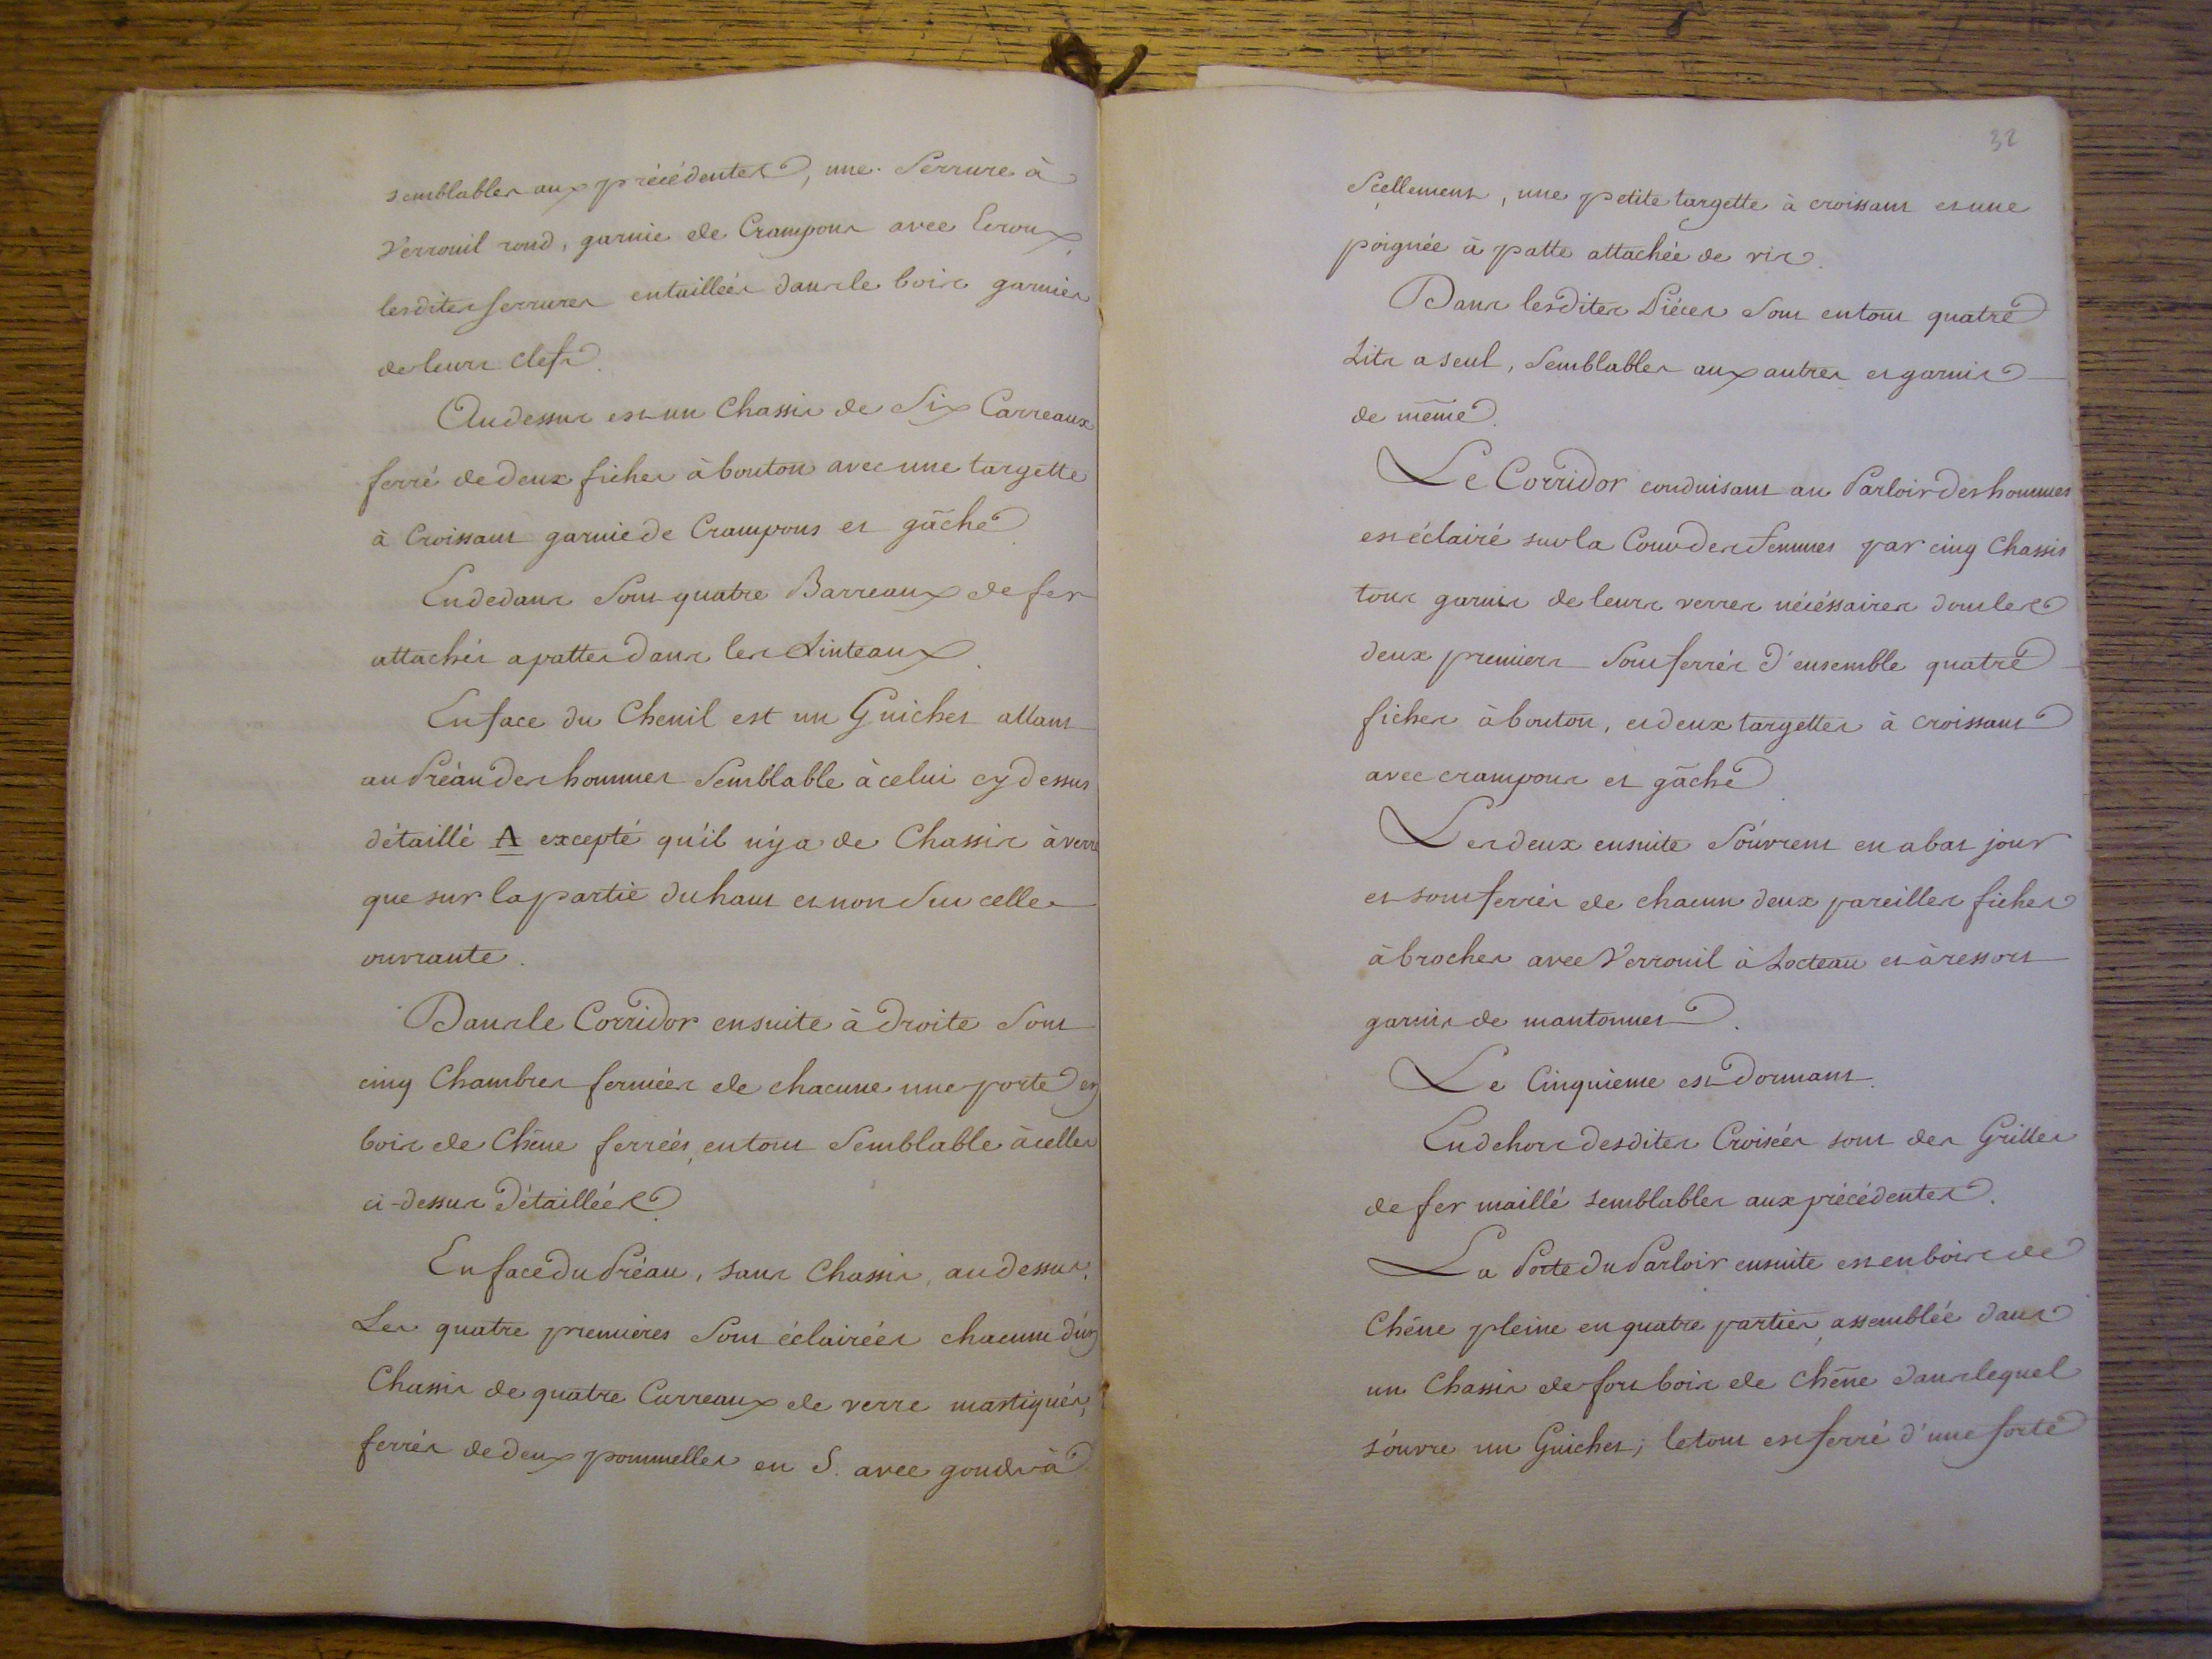 semblables aux précédentes, une Serrure à
Verrouil rond, garnie de Crampons avec Ecroux,
lesdites serrures entaillées dans le bois garnies
de leurs clefs.
Audessus est un Chassis de Six Carreaux
ferré de deux fiches à bouton avec une targette
à Croissant garnie de Crampons et gâche.
Endedans Sont quatre Barreaux de fer
attachés a pattes dans les Linteaux.
Enface du Chenil est un Guichet allant
au Préau des hommes Semblable à celui cy dessus
détaillé A excepté qu'il n'y a de Chassis à verre
que sur la partie du haut et non Sur celle
ouvrante.
Dans le Corridor ensuite à droite Sont
cinq Chambres fermées de chacune une porte en
bois de Chêne ferrées, entout Semblable à celles
ci-dessus détaillées.
Enface du Préau, sans Chassis, audessus.
Les quatre premières Sont éclairées chacune d'un
Chassis de quatre Carreaux de verre mastiqués,
ferrés de deux pommelles en S. avec gonds à
32
Scellement, une petite targette à croissant et une
poignée à patte attachée de vis.
Dans lesdites Piéces Sont entout quatre
Lits a seul, Semblables aux autres et garnis
de même.
Le Corridor conduisant au Parloir des hommes
est éclairé sur la Cour des femmes par cinq Chassis
tous garnis de leurs verres nécéssaires dont les
deux premiers Sont ferrés d'ensemble quatre
fiches à bouton, et deux targettes à croissant
avec crampons et gâche.
Les deux ensuite S'ouvrent en abat jour
et sont ferrés de chacun deux pareilles fiches
à broches avec Verrouil à Locteau et à ressort
garnis de mantonnet.
Le Cinquieme est Dormant.
Endehors desdites Croisées sont des Grilles
de fer maillé semblables aux précédentes.
La Porte du Parloir ensuite est en bois de
Chêne pleine en quatre parties, assemblée dans
un Chassis de fort bois de chêne dans lequel
s'ouvre un Guichet; le tout est ferré d'une forte